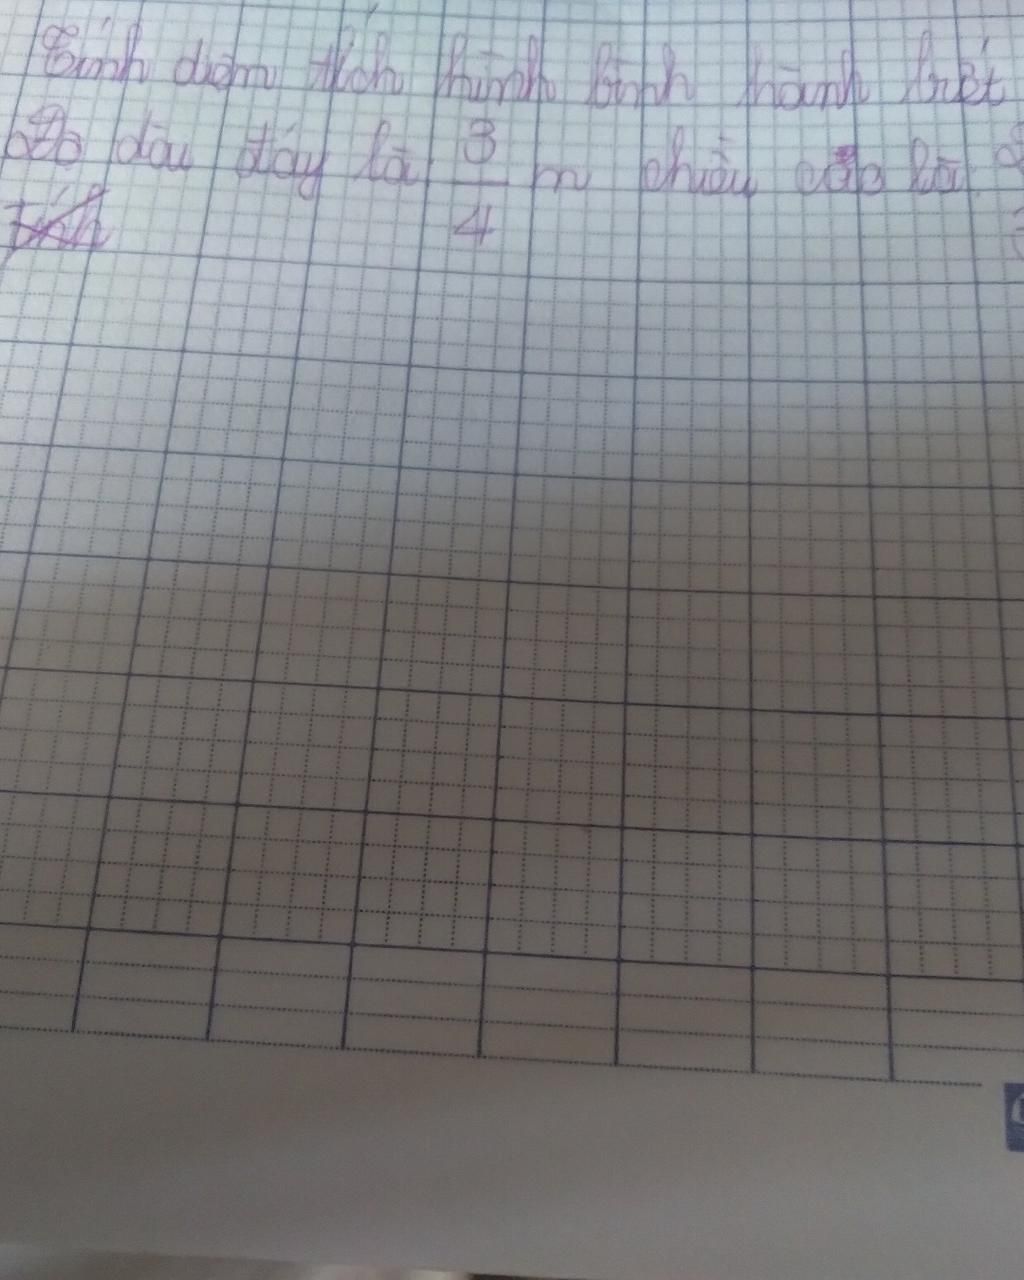 Tính diện tích hình bình hành biết
độ dài đáy là 3/4 m chiều cao là
tính